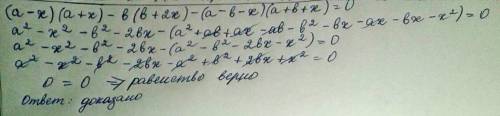 (a-x)(a+x)-в(в+2x)-(a-в-x)(a+в+x)=0
a²-x²-в²-2вx-(a²+aв+ax-aв-в²-вx-ax-вx-x²)=0
a²-x²-в²-2вx-(a²-в²-2вx-x²)=0
a²-x²-в²-2вx-a²+в²+2вx+x²=0
0=0 ⇒ равенство верно
Ответ: доказано